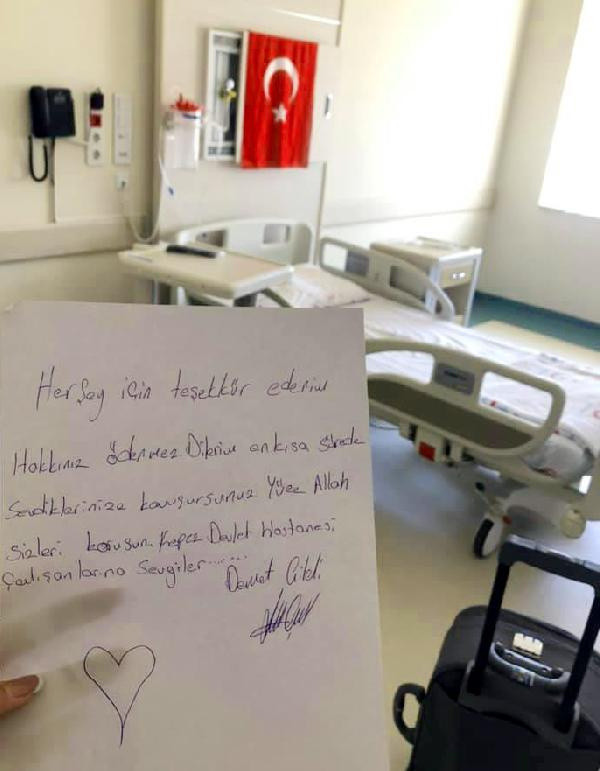 Herşey için teşekkür ederim
Hakkınız ödenmez Dilerim enkısa sürede
Sevdiklerinize kavuşursunuz Yüce Allah
sizleri korusun. Kepez Devlet Hastanesi
Çalışanlarına Sevgiler......